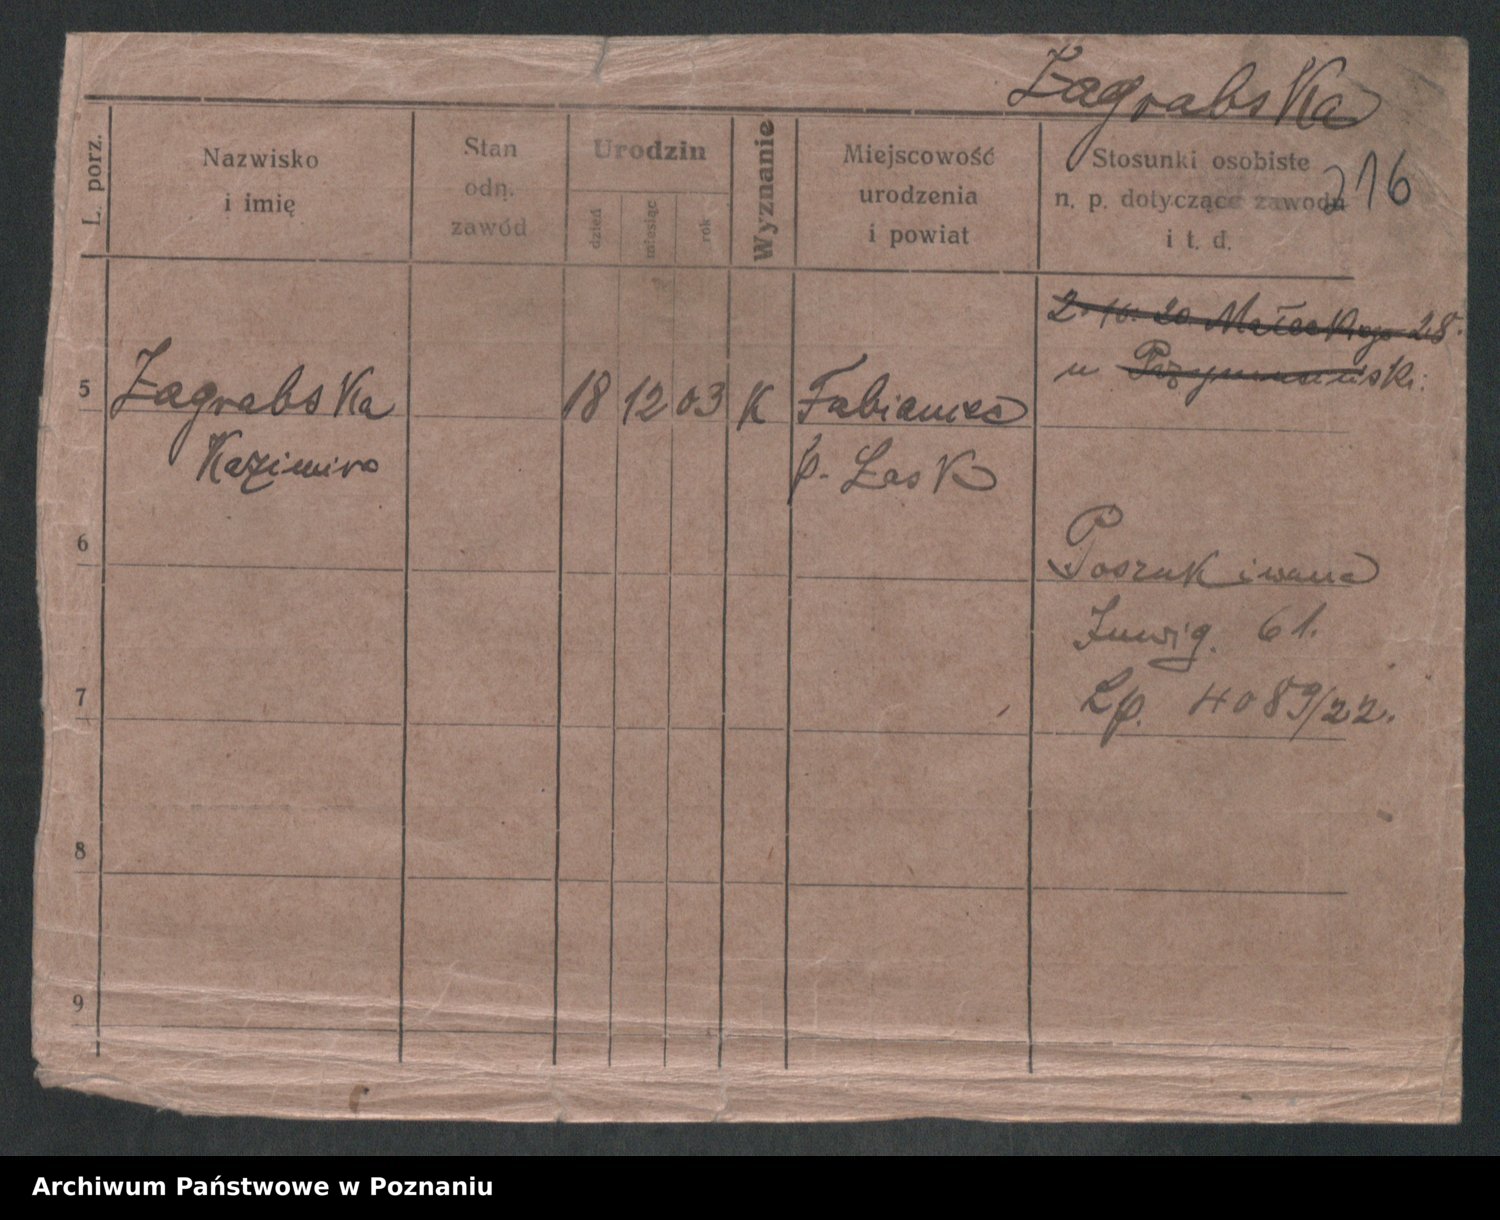 Zagrabska
216
L. porz.
Nazwisko
i imię
Stan
odn.
zawód
Urodzin
dzień
miesiąc
rok
Wyznanie
Miejscowość
urodzenia
i powiat
Stosunki osobiste
n. p. dotyczące zawodu
i t. d.
2. 10. 20 Małeckiego 28.
u
5
Zagrabska
Kazimira
18 12 03 K
Fabianice
p. Łask
6
Poszukiwana
61.
Lp. 4089/22.
7
8
9
Archiwum Państwowe w Poznaniu